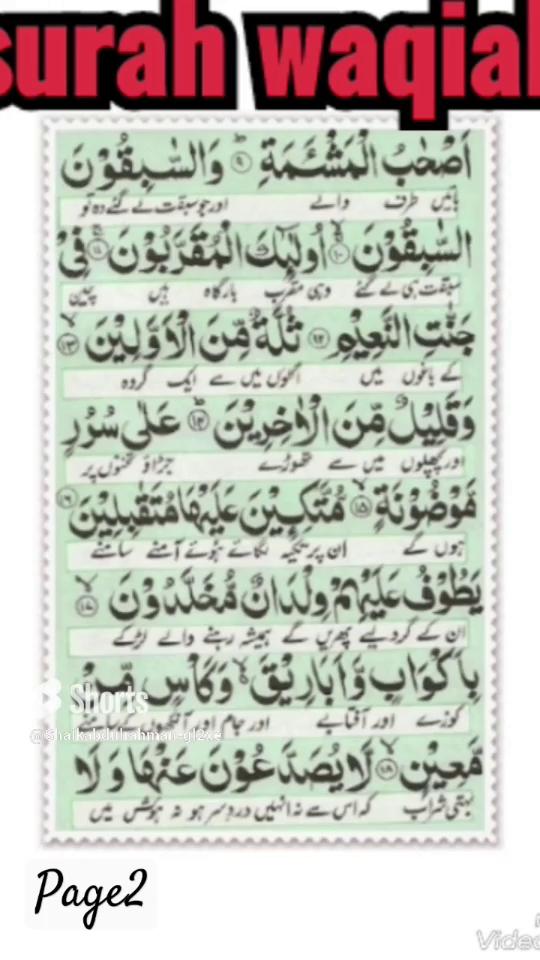 surah waqiah
اَصْحٰبُ الْمَشْـَٔمَةِ ۹ وَالسّٰبِقُوْنَ
بائیں طرف والے اور جو سبقت لے گئے وہ تو
السّٰبِقُوْنَ ۱۰ اُولٰٓئِكَ الْمُقَرَّبُوْنَ ۱۱ فِيْ
سبقت ہی لے گئے وہی مقرب بارگاہ ہیں چین
جَنّٰتِ النَّعِيْمِ ۱۲ ثُلَّةٌ مِّنَ الْاَوَّلِيْنَ ۱۳
کے باغوں میں اگلوں میں سے ایک گروہ
وَقَلِيْلٌ مِّنَ الْاٰخِرِيْنَ ۱۴ عَلٰى سُرُرٍ
اور پچھلوں میں سے تھوڑے جڑاؤ تختوں پر
مَّوْضُوْنَةٍ ۱۵ مُّتَّكِـِٕيْنَ عَلَيْهَا مُتَقٰبِلِيْنَ ۱۶
ہوں گے ان پر تکیہ لگائے ہوئے آمنے سامنے
يَطُوْفُ عَلَيْهِمْ وِلْدَانٌ مُّخَلَّدُوْنَ ۱۷
ان کے گرد لیے پھریں گے ہمیشہ رہنے والے لڑکے
بِاَكْوَابٍ وَّاَبَارِيْقَ وَكَاْسٍ مِّنْ
کوزے اور آفتابے اور جام اور آنکھوں کے سامنے
Shorts
@Shaikabdulrahman-gl2xe
مَّعِيْنٍ ۱۸ لَا يُصَدَّعُوْنَ عَنْهَا وَلَا
بہتی شراب کہ اس سے نہ انہیں درد سر ہو نہ ہوش میں
Page2
Video